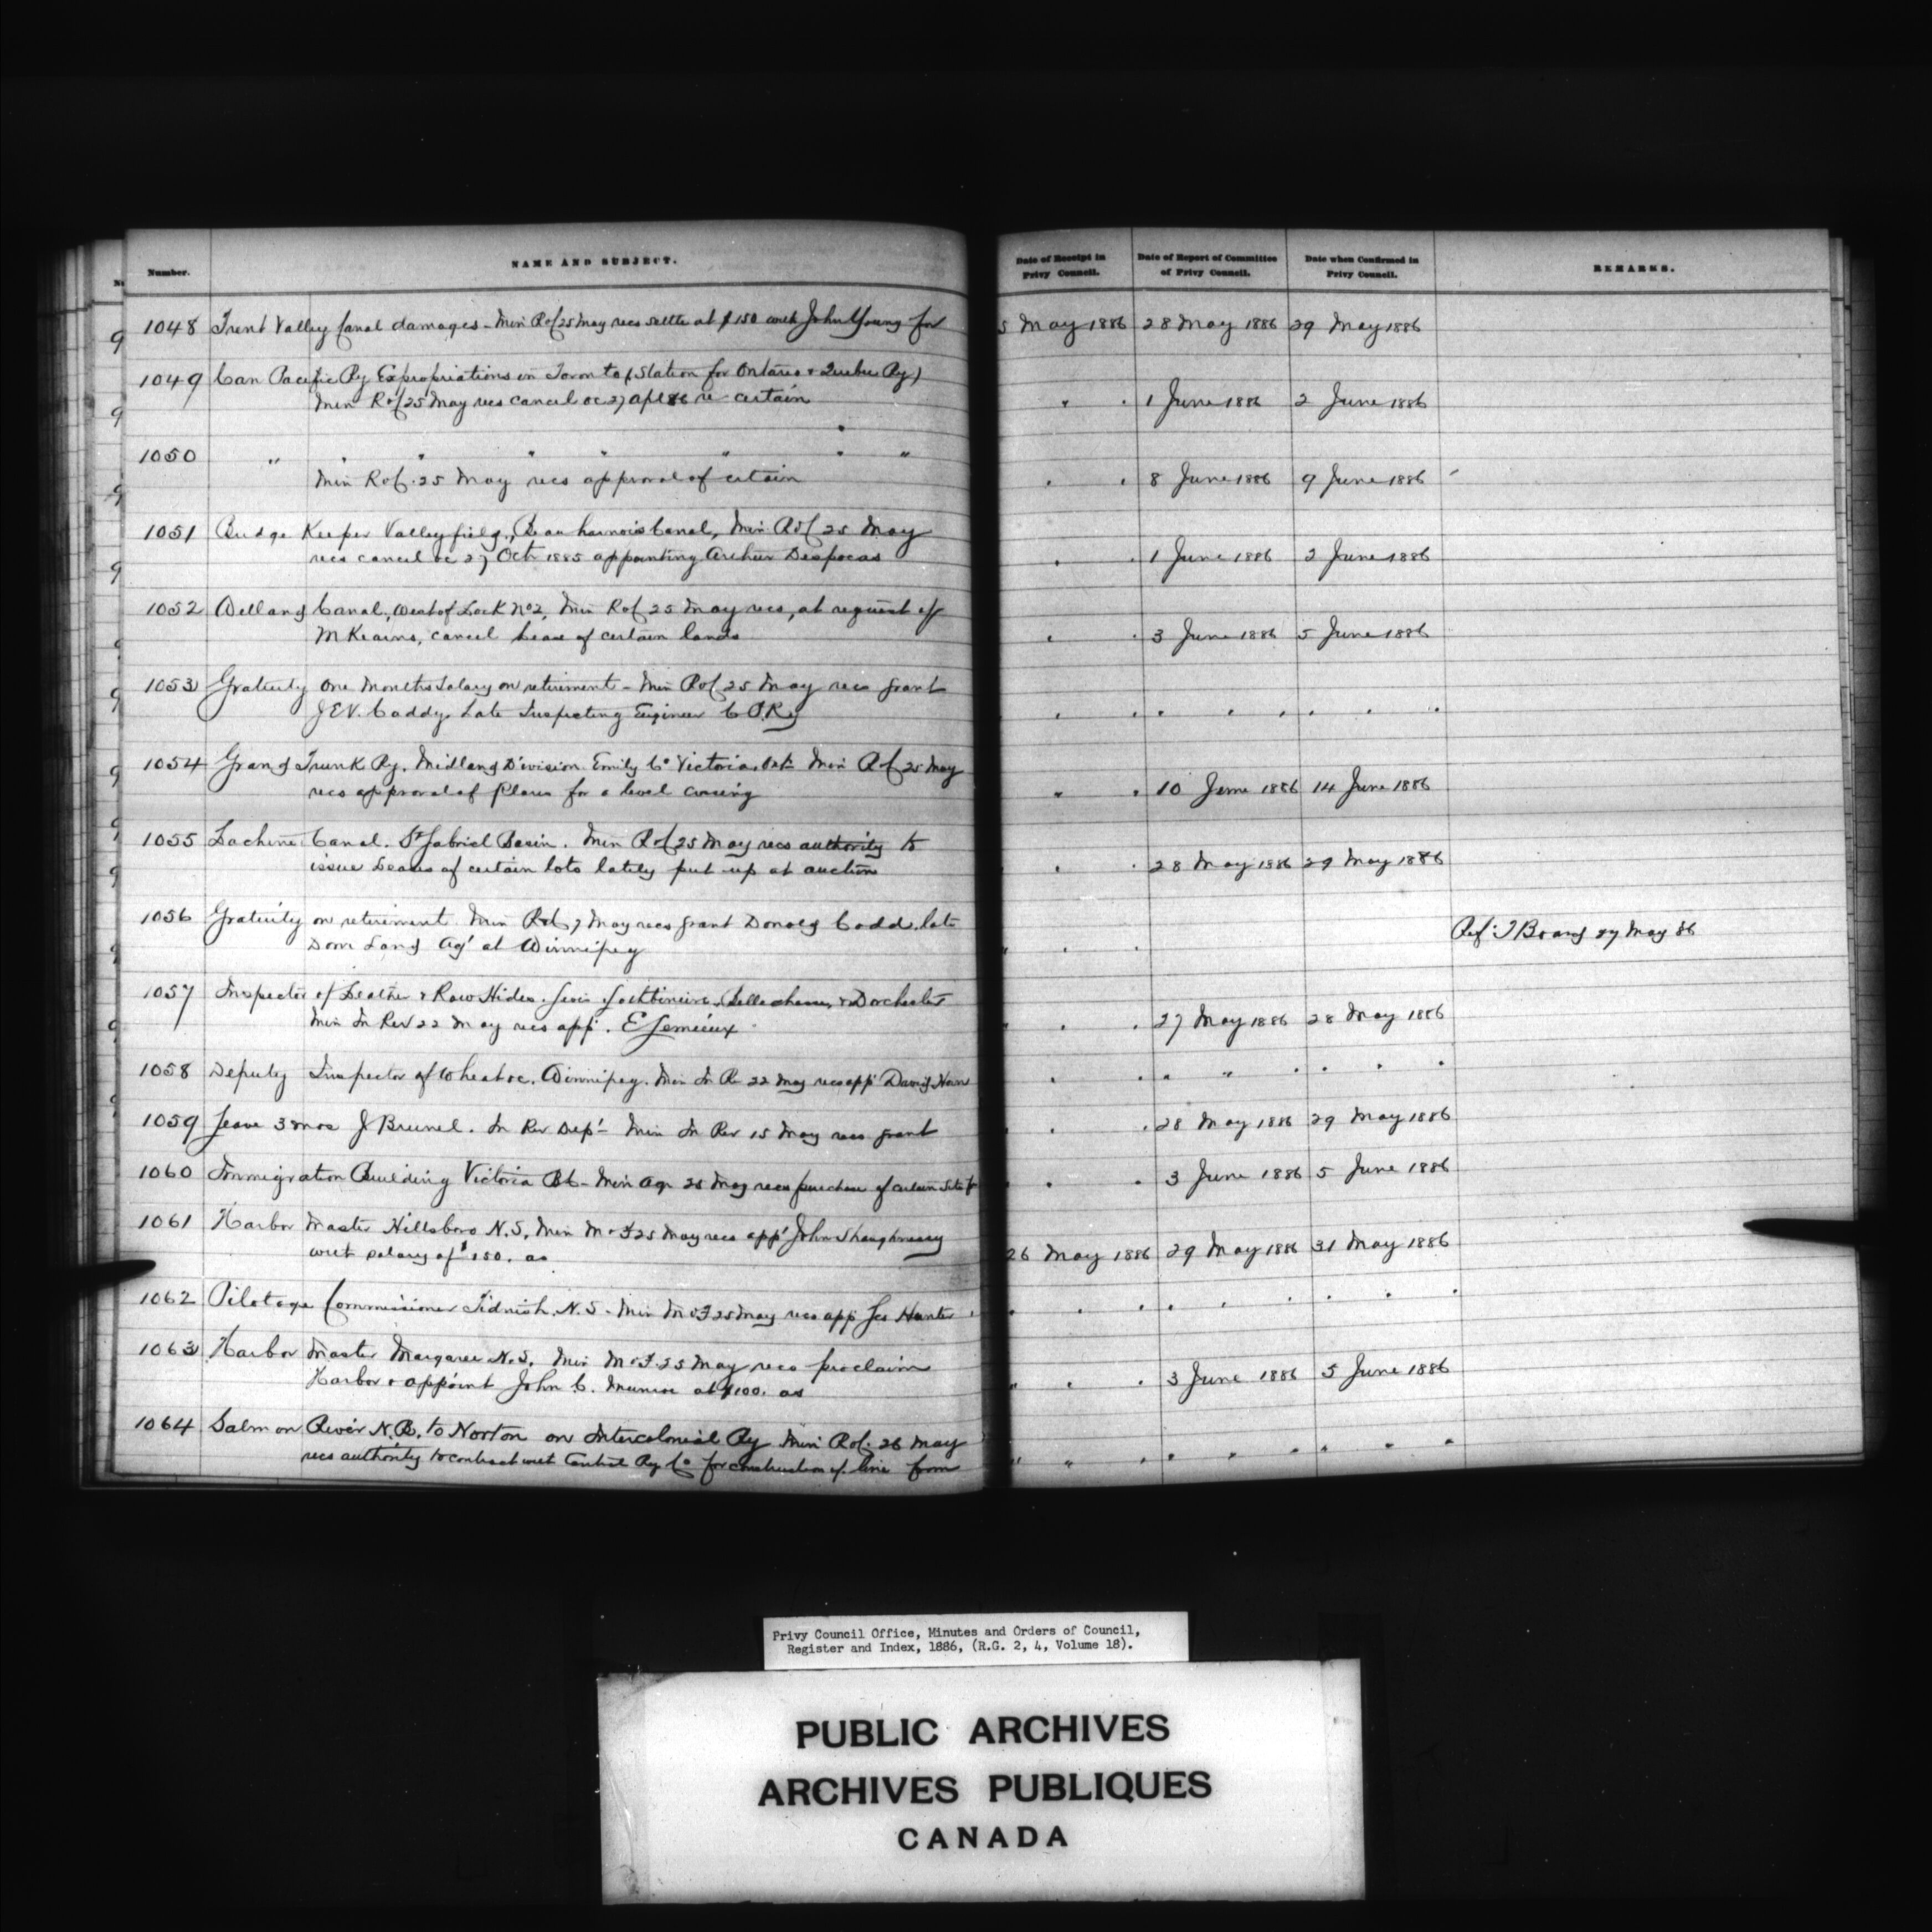 Number. NAME AND SUBJECT. Date of Receipt in Privy Council. Date of Report of Committee of Privy Council. Date when Confirmed in Privy Council. REMARKS.
1048 Trent Valley Canal damages - Min R of C 25 May recs settle at $150 with John Young for 5 May 1886 28 May 1886 29 May 1886
1049 Can Pacific Ry Expropriations in Toronto (Station for Ontario & Quebec Ry)
Min R of C 25 May recs cancel oc 27 Apl 86 re certain " " 1 June 1886 2 June 1886
1050 " " " " " " "
Min R of C 25 May recs approval of certain " " 8 June 1886 9 June 1886
1051 Bridge Keeper Valleyfield, Beauharnois Canal, Min R of C 25 May
recs cancel oc 27 Oct 1885 appointing Arthur Despocas " " 1 June 1886 2 June 1886
1052 Welland Canal, West of Lock No 2, Min R of C 25 May recs, at request of
M Kearns, cancel lease of certain lands " " 3 June 1886 5 June 1886
1053 Gratuity One Months Salary on retirement - Min R of C 25 May recs grant
J E V. Caddy, Late Inspecting Engineer C P. Ry " " " " " " " "
1054 Grand Trunk Ry. Midland Division Emily Co Victoria Ont Min R of C 25 May
recs approval of Plans for a level crossing " " 10 June 1886 14 June 1886
1055 Lachine Canal. St Gabriel Basin. Min R of C 25 May recs authority to
issue Leases of certain lots lately put up at auction " " 28 May 1886 29 May 1886
1056 Gratuity on retirement Min 7 May recs grant Donald Codd, late
Dom Land Agt at Winnipeg " " " Ref: T Board 27 May 86
1057 Inspector of Leather & Raw Hides. Levis Lotbiniere, Bellechasse, & Dorchester
Min In Rev 22 May recs appt. E Lemieux " " " 27 May 1886 28 May 1886
1058 Deputy Inspector of Wheat &c. Winnipeg. Min In R 22 May recs appt David Horn " " " " " " "
1059 Leave 3 mos J Brunel. In Rev Dept - Min In Rev 15 May recs grant " " 28 May 1886 29 May 1886
1060 Immigration Building Victoria BC - Min Agr 25 May recs purchase of certain site for " " 3 June 1886 5 June 1886
1061 Harbor Master Hillsboro N.S. Min M & F 25 May recs appt John Shaughnessy
with salary of $150. as 26 May 1886 29 May 1886 31 May 1886
1062 Pilotage Commissioner Tidnish, N.S - Min M & F 25 May recs app Jas Hunter " " " " " " " " "
1063 Harbor Master Margaree N.S. Min M & F. 25 May recs proclaim
Harbor & appoint John C. Munroe at $100. as " " " 3 June 1886 5 June 1886
1064 Salmon River N.B. to Norton on Intercolonial Ry Min R of C 26 May
recs authority to contract with Central Ry Co for construction of line from " " " " " " " " "
Privy Council Office, Minutes and Orders of Council,
Register and Index, 1886, (R.G. 2, 4, Volume 18).
PUBLIC ARCHIVES
ARCHIVES PUBLIQUES
CANADA